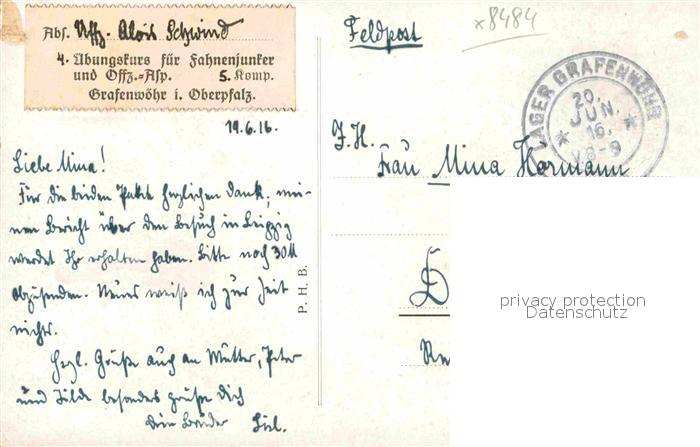 Abs. Uffz. Alois Schwind
4. Übungskurs für Fahnenjunker
und Offz.-Asp. 5. Komp.
Grafenwöhr i. Oberpfalz.
19.6.16.
Liebe Mina!
Für die beiden Pakte herzlichen Dank; mei-
nen Bericht über den Besuch in Leipzig
werdet Ihr erhalten haben. Bitte noch 30 M
abzusenden. Neues weiß ich zur Zeit
nichts.
Hrzl. Grüße auch an Mutter, Peter
und Tilde besonders grüße Dich
Dein Bruder
P. H. B.
Feldpost
x8484
LAGER GRAFENWÖHR
20.
JUN.
16.
V.8-9
F. H.
Frau Mina Hörmann
D
privacy protection
Datenschutz